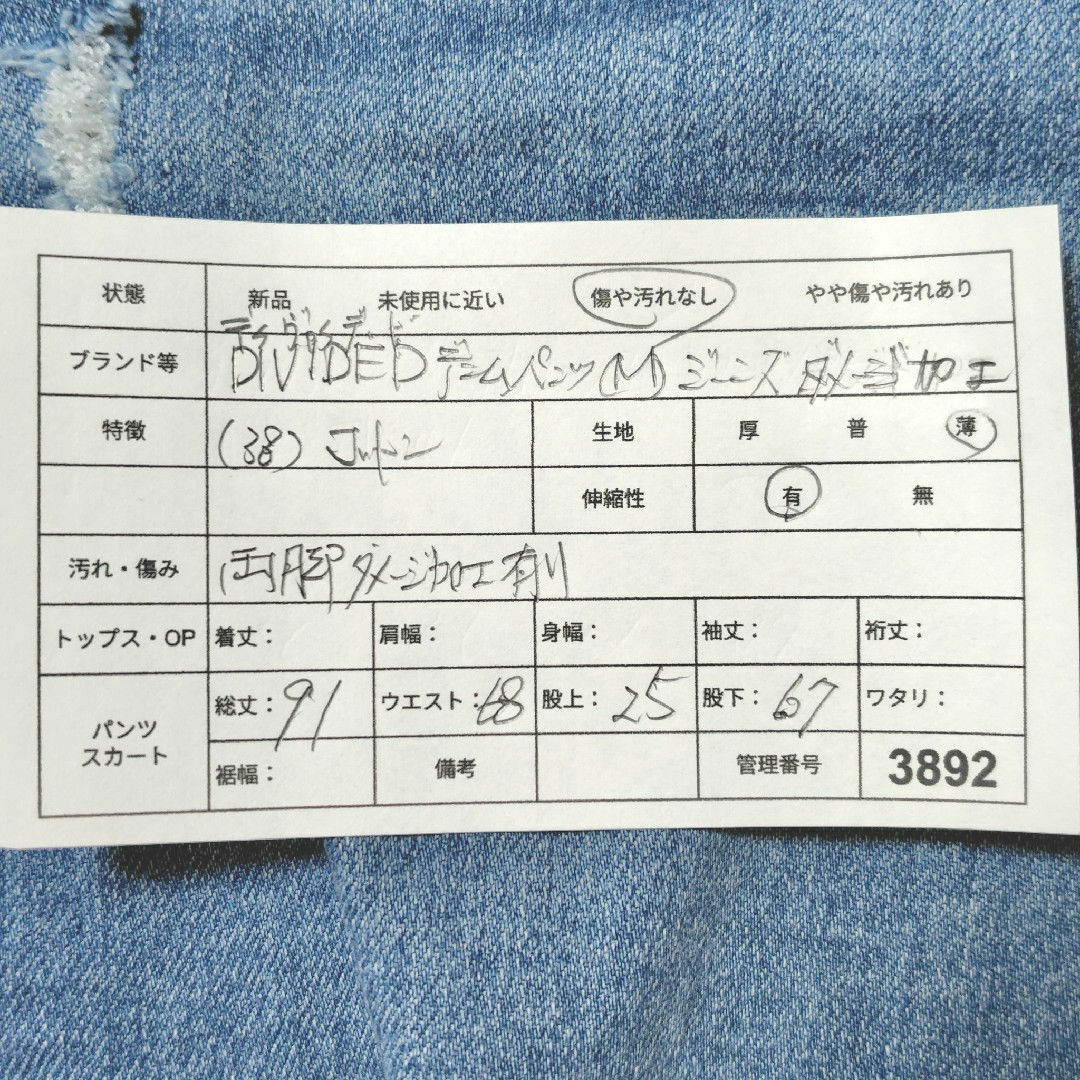 状態 新品 未使用に近い 傷や汚れなし やや傷や汚れあり
ディバイデッド
ブランド等 DIVIDED デニムパンツ(M) ジーンズ ダメージ加工
特徴 (38) 生地 厚 普 薄
伸縮性 有 無
汚れ・傷み 両脚ダメージ加工有り
トップス・OP 着丈: 肩幅: 身幅: 袖丈: 裄丈:
パンツ スカート 総丈:91 ウエスト:68 股上:25 股下:67 ワタリ:
裾幅: 備考 管理番号 3892